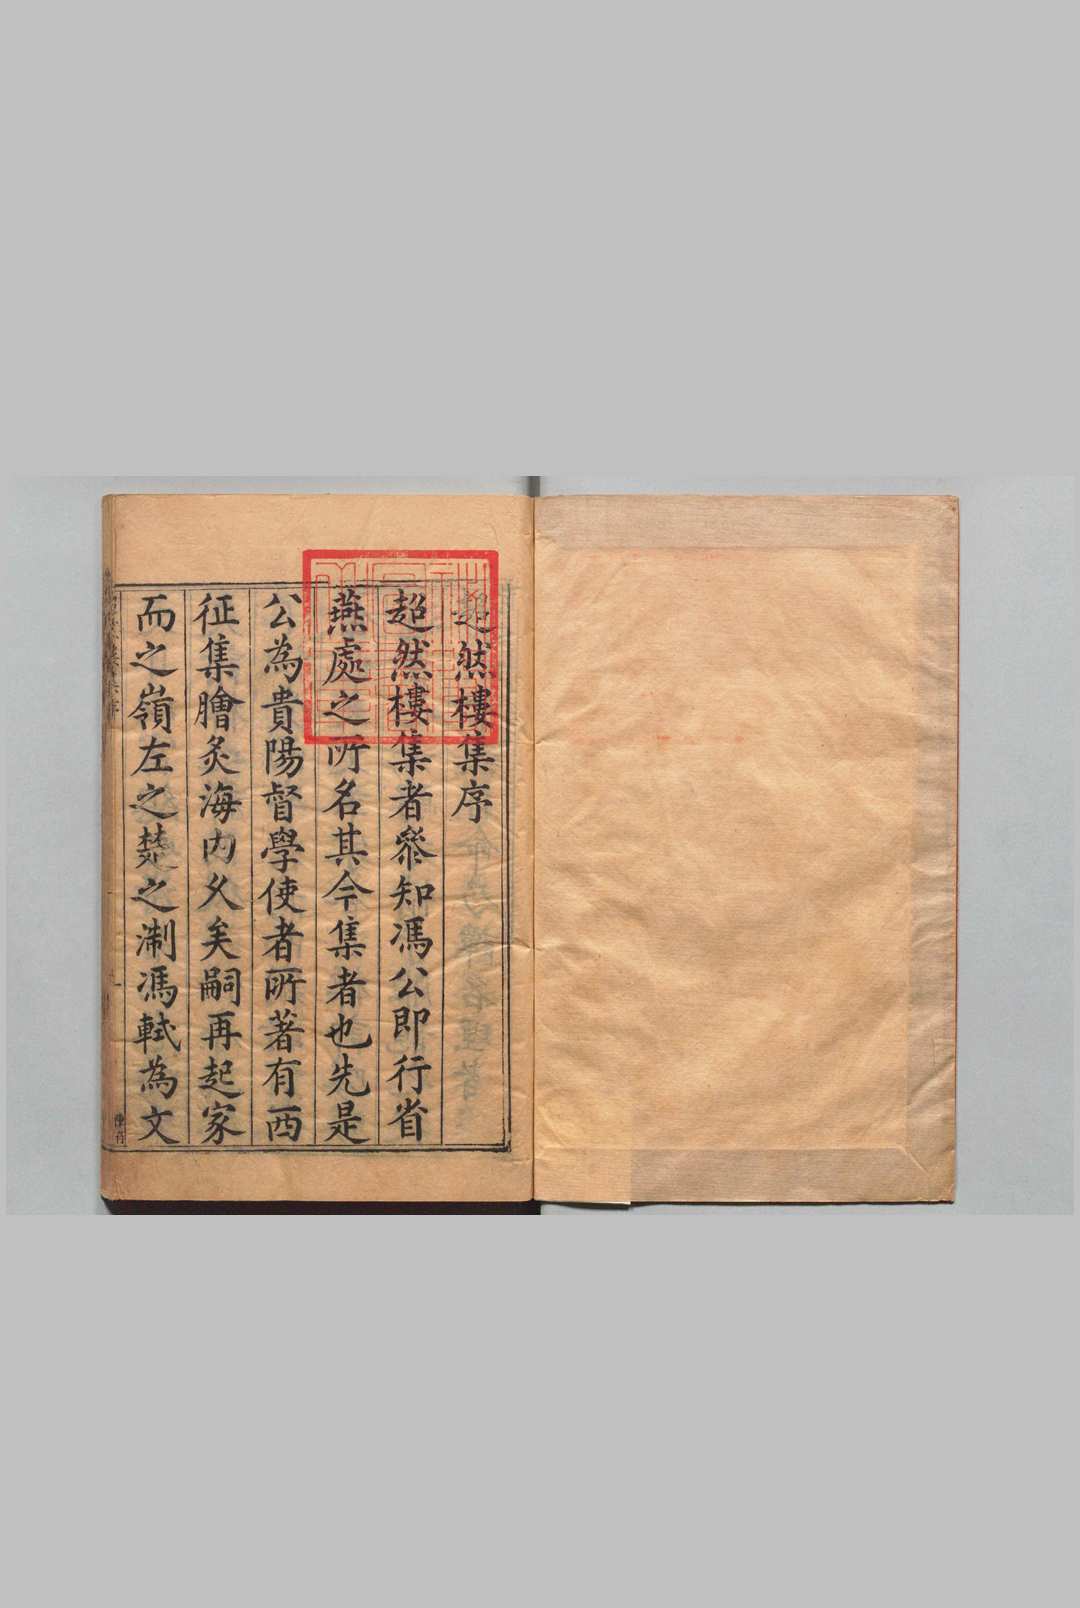 超然樓集序
超然樓集者參知馮公即行省
燕處之所名其今集者也先是
公為貴陽督學使者所著有西
征集膾炙海內久矣嗣再起家
而之嶺左之楚之淛馮軾為文